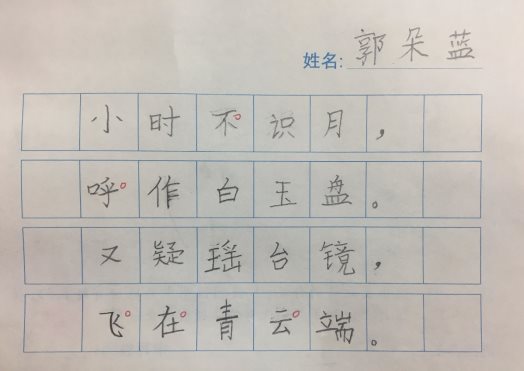 姓名: 郭朵蓝
小时不识月，
呼作白玉盘。
又疑瑶台镜，
飞在青云端。